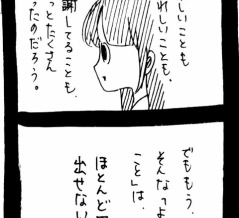 しいことも
れしいことも、
謝してることも、
っとたくさん
ったのだろう。
でももう、
そんな“よ
こと”は、
ほとんど
出せない